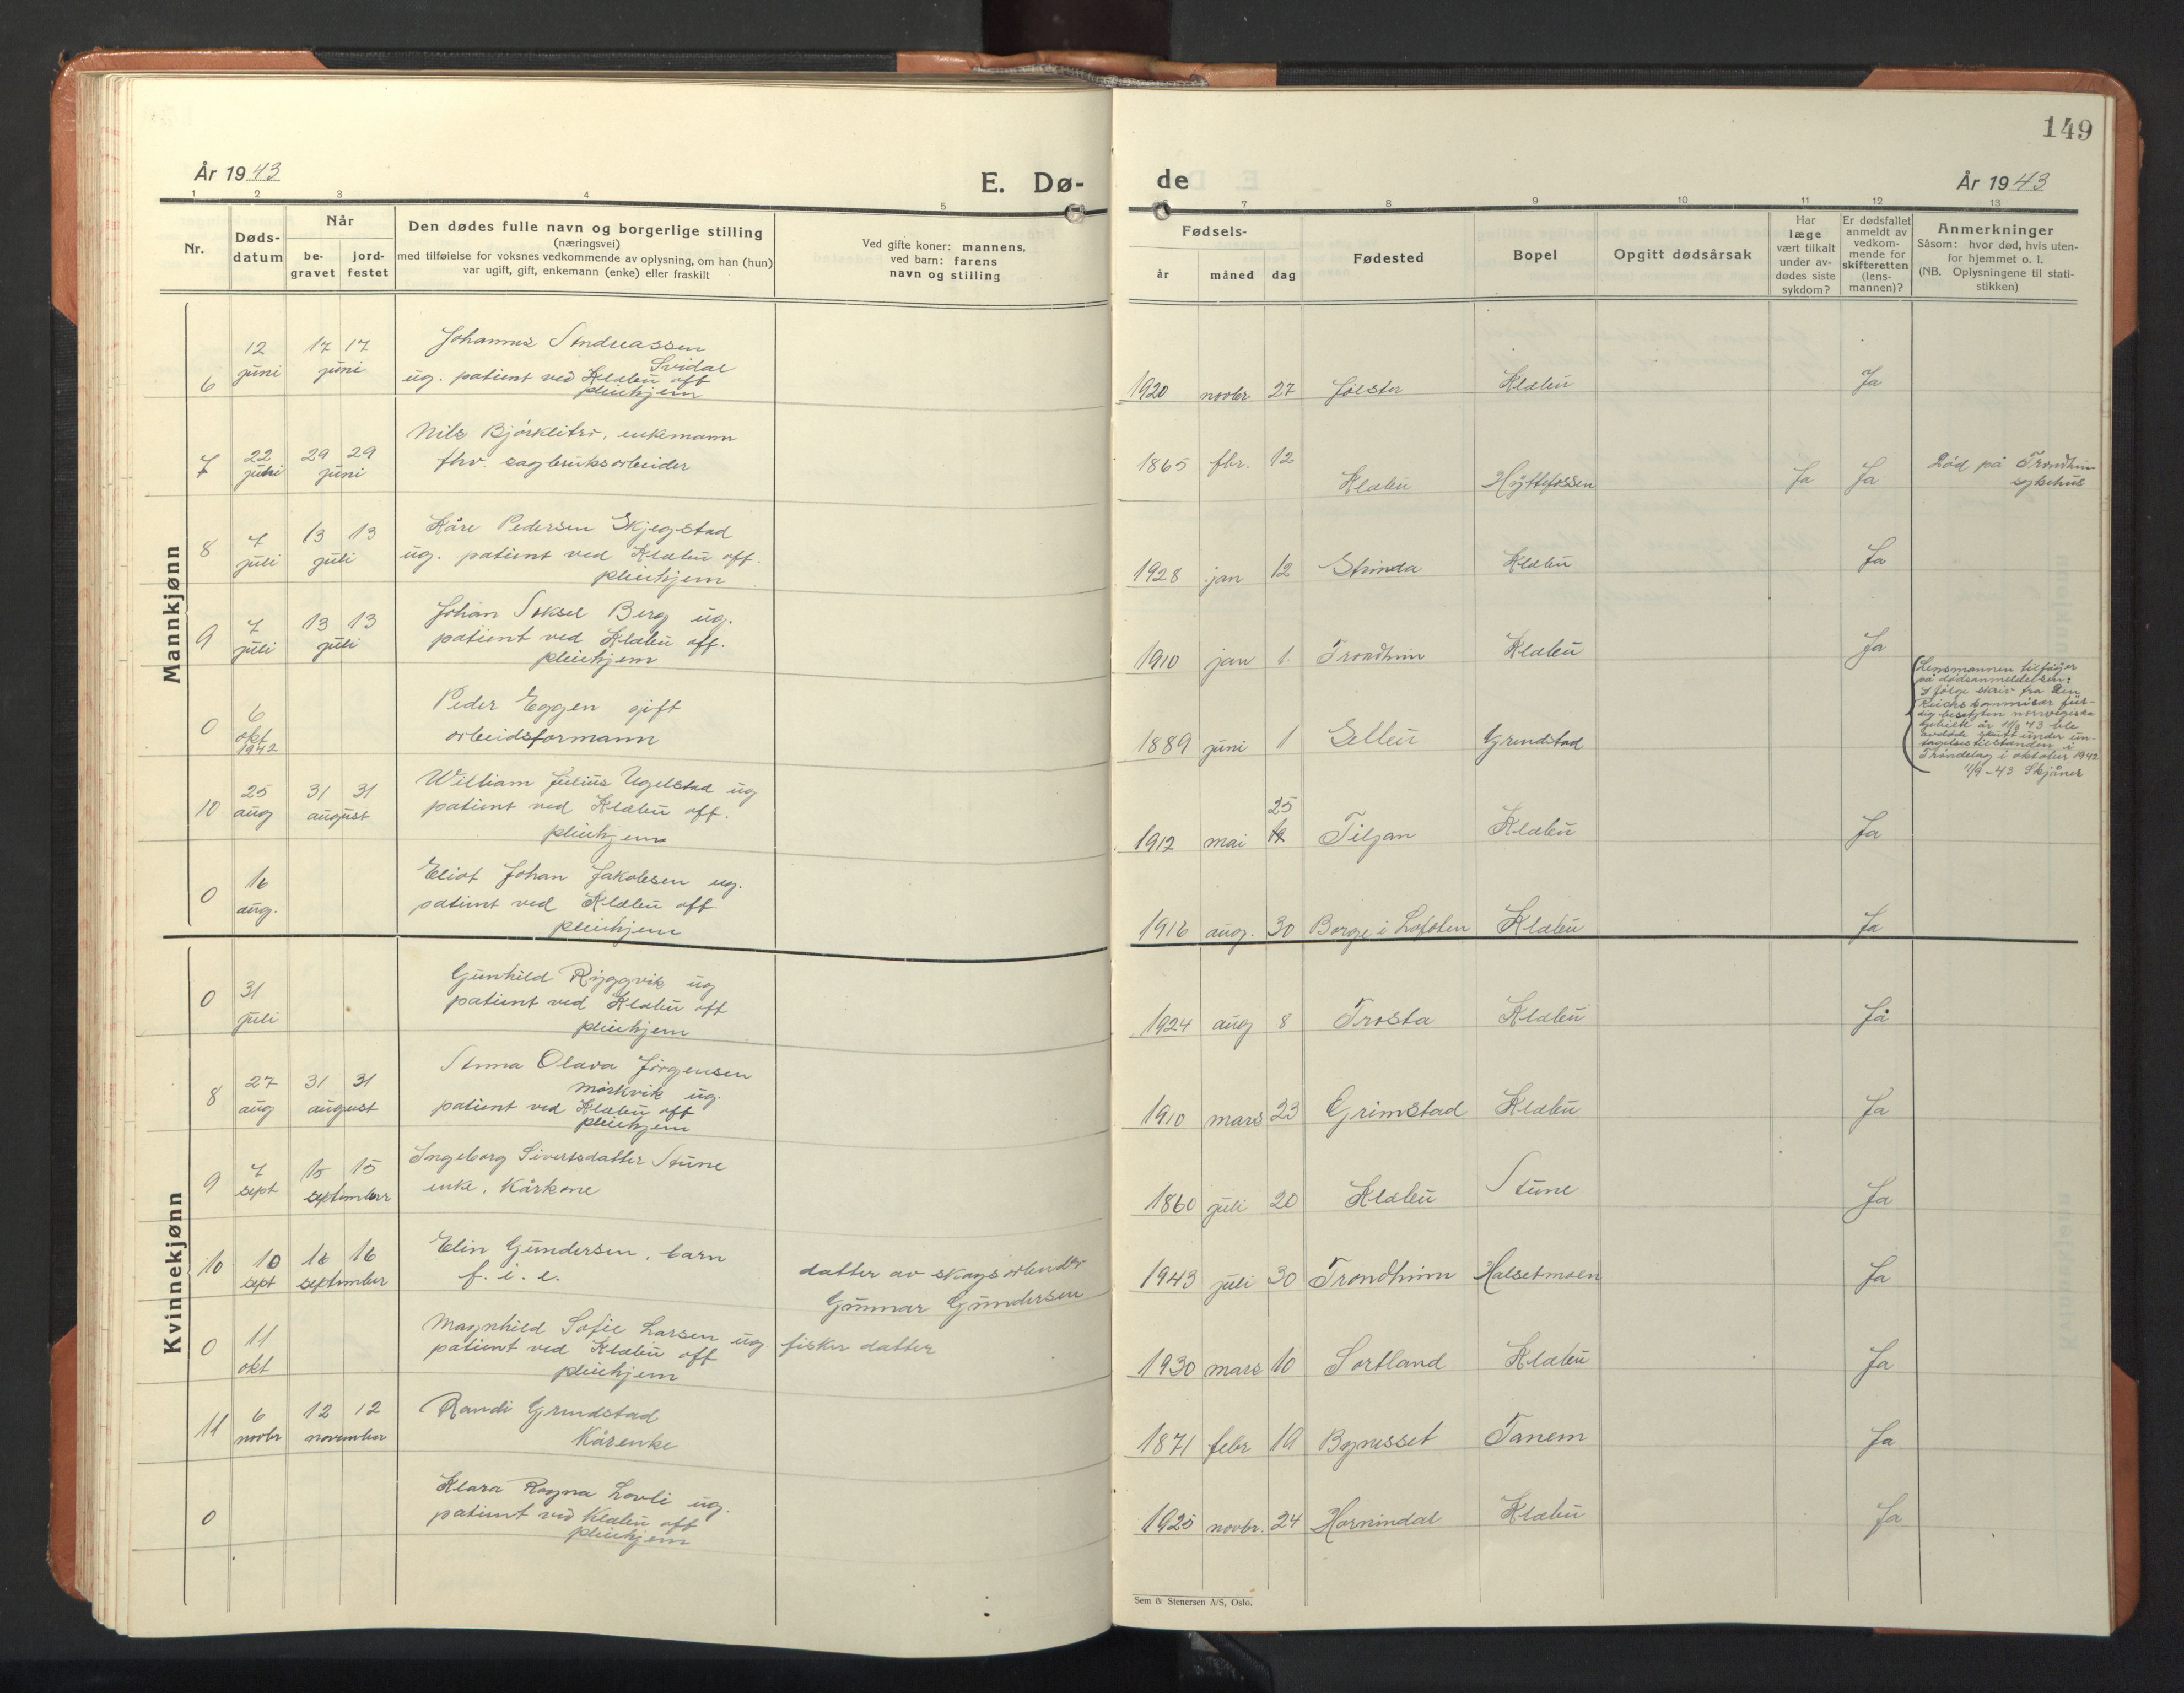 149
År 1943
E. Dø-
de
År 1943
1 2 3 4 5
6 7 8 9 10 11 12 13
Nr.
Døds-
datum
Når
be-
gravet
jord-
festet
Den dødes fulle navn og borgerlige stilling
(næringsvei)
med tilføielse for voksnes vedkommende av oplysning, om han (hun)
var ugift, gift, enkemann (enke) eller fraskilt
Ved gifte koner: mannens,
ved barn: farens
navn og stilling
Fødsels-
år måned dag
Fødested
Bopel
Opgitt dødsårsak
Har
læge
vært tilkalt
under av-
dødes siste
sykdom?
Er dødsfallet
anmeldt av
vedkom-
mende for
skifteretten
(lens-
mannen)?
Anmerkninger
Såsom: hvor død, hvis uten-
for hjemmet o. l.
(NB. Oplysningene til stati-
stikken)
Mannkjønn
6
12
juni
17 17
juni
Johannes Andreassen
Svidal
ug. patient ved Klæbu off
pleiehjem
1920 novbr 27 Jølster Klæbu Ja
7
22
juni
29 29
juni
Nils Bjørklitrø, enkemann
fhv. sagbruksarbeider
1865 fbr. 12 Klæbu Hyttefossen Ja Ja
Død på Trondheim
sykehus
8
7
juli
13 13
juli
Kåre Pedersen Skjegstad
ug. patient ved Klæbu off.
pleiehjem
1928 jan 12 Strinda Klæbu Ja
9
7
juli
13 13
juli
Johan Aksel Berg ug.
patient ved Klæbu off.
pleiehjem
1910 jan 1. Trondheim Klæbu Ja
0
6
okt
1942
Peder Eggen gift
arbeidsformann
1889 juni 1 Selbu Grendstad
Lensmannen tilføjer
på dødsanmeldelsen:
I følge skriv fra Den
Reichskommissar für
die besetzten norwegiske
Gebiete av 11/9 43 ble
avdøde skutt under un-
tagelsestilstanden i
Trøndelag i oktober 1942
11/9-43 Skjåner
10
25
aug
31 31
august
William Julius Ugelstad ug
patient ved Klæbu off.
pleiehjem
1912 mai 25 Tiljan Klæbu Ja
0
16
aug.
Eliot Johan Jakobsen ug.
patient ved Klæbu off.
pleiehjem
1916 aug. 30 Borge i Lofoten Klæbu Ja
Kvinnekjønn
0
31
juli
Gunhild Ryggvik ug
patient ved Klæbu off
pleiehjem
1924 aug 8 Frosta Klæbu Ja
8
27
aug
31 31
august
Anna Olava Jørgensen
Mørkvik ug.
patient ved Klæbu off
pleiehjem
1910 mars 23 Grimstad Klæbu Ja
9
7
sept
15 15
september
Ingeborg Sivertsdatter Aune
enke, Kårkone
1860 juli 20 Klæbu Aune Ja
10
10
sept
16 16
september
Elin Gundersen, barn
f. i. e.
datter av skogsarbeider
Gunnar Gundersen
1943 juli 30 Trondheim Halsetmoen Ja
0
11
okt
Magnhild Sofie Larsen ug
patient ved Klæbu off
pleiehjem
fisker datter
1930 mars 10 Sortland Klæbu Ja
11
6
novbr
12 12
november
Randi Grendstad
Kårenke
1871 febr 19 Bynesset Tanem Ja
0
Klara Ragna Lovli ug.
patient ved Klæbu off
pleiehjem
1925 novbr. 24 Hornindal Klæbu Ja
Sem & Stenersen A/S, Oslo.